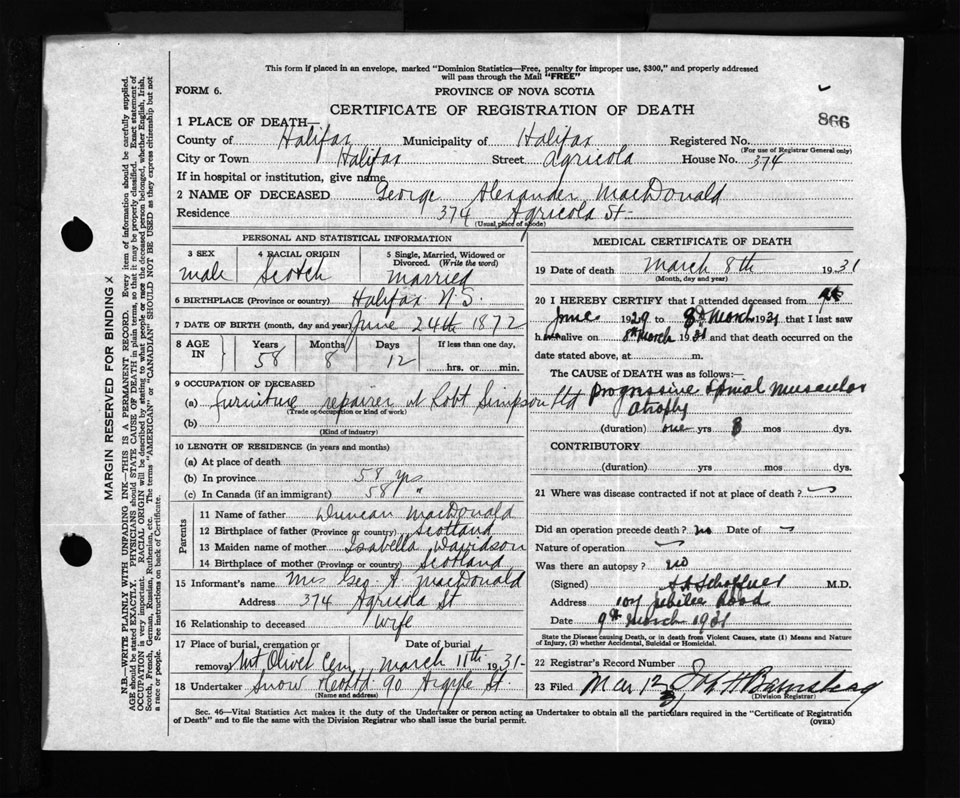 This form if placed in an envelope, marked "Dominion Statistics—Free, penalty for improper use, $300," and properly addressed
will pass through the Mail "FREE"
FORM 6.
PROVINCE OF NOVA SCOTIA
CERTIFICATE OF REGISTRATION OF DEATH
866
1 PLACE OF DEATH—
County of Halifax Municipality of Halifax Registered No.
(For use of Registrar General only)
City or Town Halifax Street Agricola House No. 374
If in hospital or institution, give name
2 NAME OF DECEASED George Alexander MacDonald
Residence 374 Agricola St-
(Usual place of abode)
PERSONAL AND STATISTICAL INFORMATION
3 SEX male
4 RACIAL ORIGIN Scotch
5 Single, Married, Widowed or Divorced. (Write the word) married
6 BIRTHPLACE (Province or country) Halifax N.S.
7 DATE OF BIRTH (month, day and year) June 24th 1872
8 AGE IN Years 58 Months 8 Days 12 If less than one day, hrs. or min.
9 OCCUPATION OF DECEASED
(a) furniture repairer at Robt Simpson Ltd
(Trade or occupation or kind of work)
(b)
(Kind of industry)
10 LENGTH OF RESIDENCE (in years and months)
(a) At place of death
(b) In province 58 yrs
(c) In Canada (if an immigrant) 58 "
Parents
11 Name of father Duncan MacDonald
12 Birthplace of father (Province or country) Scotland
13 Maiden name of mother Isabella Davidson
14 Birthplace of mother (Province or country) Scotland
15 Informant's name Mrs Geo A. MacDonald
Address 374 Agricola St
16 Relationship to deceased wife
17 Place of burial, cremation or removal Mt Olivet Cem Date of burial March 11th 1931-
18 Undertaker Snow & Co Ltd 90 Argyle St.
(Name and address)
MEDICAL CERTIFICATE OF DEATH
19 Date of death March 8th 1931
(Month, day and year)
20 I HEREBY CERTIFY that I attended deceased from
June 1929 to 8th March 1931 that I last saw
him alive on 8th March 1931 and that death occurred on the
date stated above, at m.
The CAUSE OF DEATH was as follows:—
Progressive Spinal Muscular
Atrophy
(duration) one yrs 8 mos dys.
CONTRIBUTORY
(duration) yrs mos dys.
21 Where was disease contracted if not at place of death?
Did an operation precede death? no Date of
Nature of operation
Was there an autopsy? no
(Signed) M.D.
Address Jubilee Road
Date 9th March 1931
State the Disease causing Death, or in death from Violent Causes, state (1) Means and Nature
of Injury, (2) whether Accidental, Suicidal or Homicidal.
22 Registrar's Record Number
23 Filed Mar 12
(Division Registrar)
Sec. 46—Vital Statistics Act makes it the duty of the Undertaker or person acting as Undertaker to obtain all the particulars required in the "Certificate of Registration
of Death" and to file the same with the Division Registrar who shall issue the burial permit.
(OVER)
MARGIN RESERVED FOR BINDING X
N.B.—WRITE PLAINLY WITH UNFADING INK—THIS IS A PERMANENT RECORD. Every item of information should be carefully supplied.
AGE should be stated EXACTLY. PHYSICIANS should STATE CAUSE OF DEATH in plain terms, so that it may be properly classified. Exact statement of
OCCUPATION is very important. RACIAL ORIGIN will be described by stating to what people or race the deceased person belonged, whether English, Irish,
Scotch, French, German, Russian, Ruthenian, etc. The terms "AMERICAN" or "CANADIAN" SHOULD NOT BE USED as they express citizenship but not
a race or people. See instructions on back of Certificate.